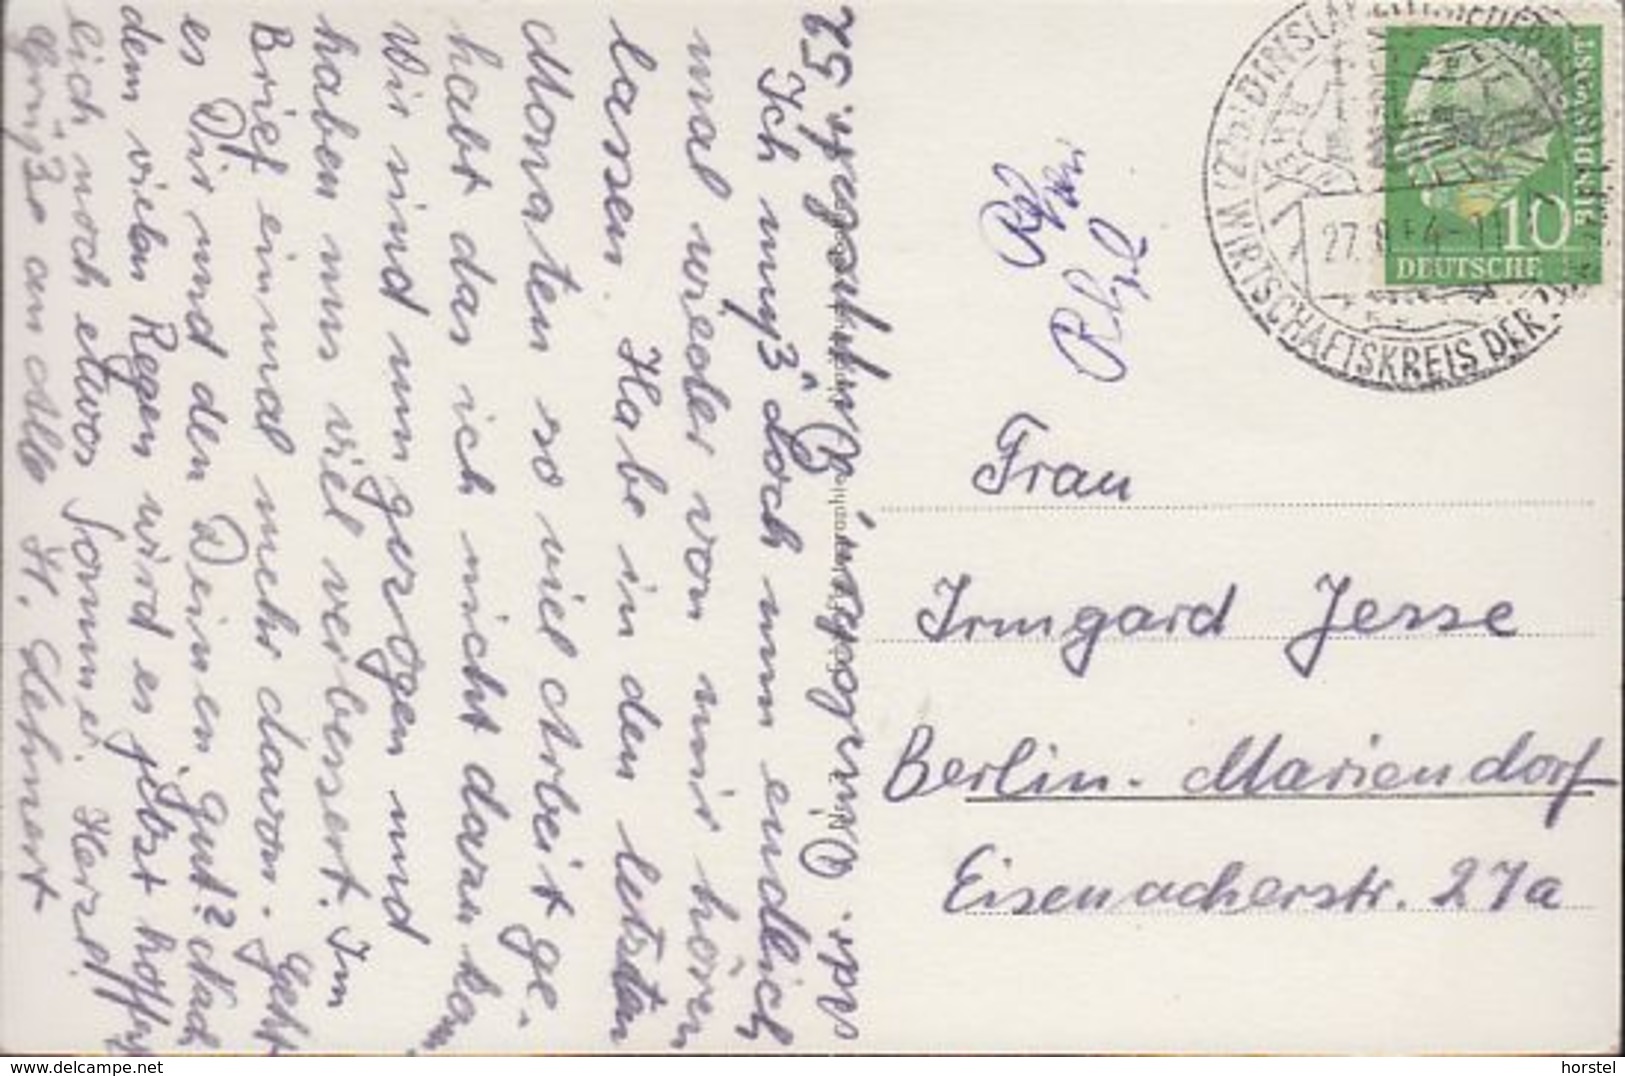 Ich muß doch nun endlich
mal wieder von mir hören
lassen. Habe in den letzten
Monaten so viel Arbeit ge-
habt das ich nicht dazu kam
Wir sind umgezogen und
haben uns viel verbessert. Im
Brief einmal mehr davon. Geht
es Dir und den Deinen gut? Nach
dem vielen Regen wird es jetzt hoffent
lich noch etwas Sonne Herzl.
Grüße an Alle H. Lehnert
Frau
Irmgard Jesse
Berlin-Mariendorf
Eisenacherstr. 27a
WIRTSCHAFTSKREIS DER
27.8.54-11
10
DEUTSCHE
BUNDESPOST
www.delcampe.net
horstel